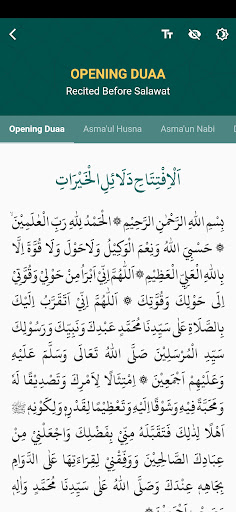 OPENING DUAA
Recited Before Salawat
Opening Duaa
Asma'ul Husna
Asma'un Nabi
D
اَلْاِفْتِتَاحِ دَلَائِلِ الْخَيْرَاتِ
بِسْمِ اللهِ الرَّحْمٰنِ الرَّحِيْمِ ۞ الْحَمْدُ لِلّٰهِ رَبِّ الْعٰلَمِيْنَ
۞ حَسْبِيَ اللهُ وَنِعْمَ الْوَكِيْلُ وَلَاحَوْلَ وَلَا قُوَّةَ اِلَّا
بِاللهِ الْعَلِيِّ الْعَظِيْمِ ۞ اَللّٰهُمَّ اِنِّيْ اَبْرَأُ مِنْ حَوْلِيْ وَقُوَّتِيْ
اِلٰى حَوْلِكَ وَقُوَّتِكَ ۞ اَللّٰهُمَّ اِنِّيْ اَتَقَرَّبُ اِلَيْكَ
بِالصَّلَاةِ عَلٰى سَيِّدِنَا مُحَمَّدٍ عَبْدِكَ وَنَبِيِّكَ وَرَسُوْلِكَ
سَيِّدِ الْمُرْسَلِيْنَ صَلَّى اللهُ تَعَالٰى وَسَلَّمَ عَلَيْهِ
وَعَلَيْهِمْ اَجْمَعِيْنَ ۞ اِمْتِثَالًا لِاَمْرِكَ وَتَصْدِيْقًا لَهٗ
وَمَحَبَّةً فِيْهِ وَشَوْقًا اِلَيْهِ وَتَعْظِيْمًا لِقَدْرِهٖ وَلِكَوْنِهٖ ﷺ
اَهْلًا لِذٰلِكَ فَتَقَبَّلْهُ مِنِّيْ بِفَضْلِكَ وَاجْعَلْنِيْ مِنْ
عِبَادِكَ الصَّالِحِيْنَ وَوَفِّقْنِيْ لِقِرَاءَتِهَا عَلَى الدَّوَامِ
بِجَاهِهٖ عِنْدَكَ وَصَلَّى اللهُ عَلٰى سَيِّدِنَا مُحَمَّدٍ وَاٰلِهٖ